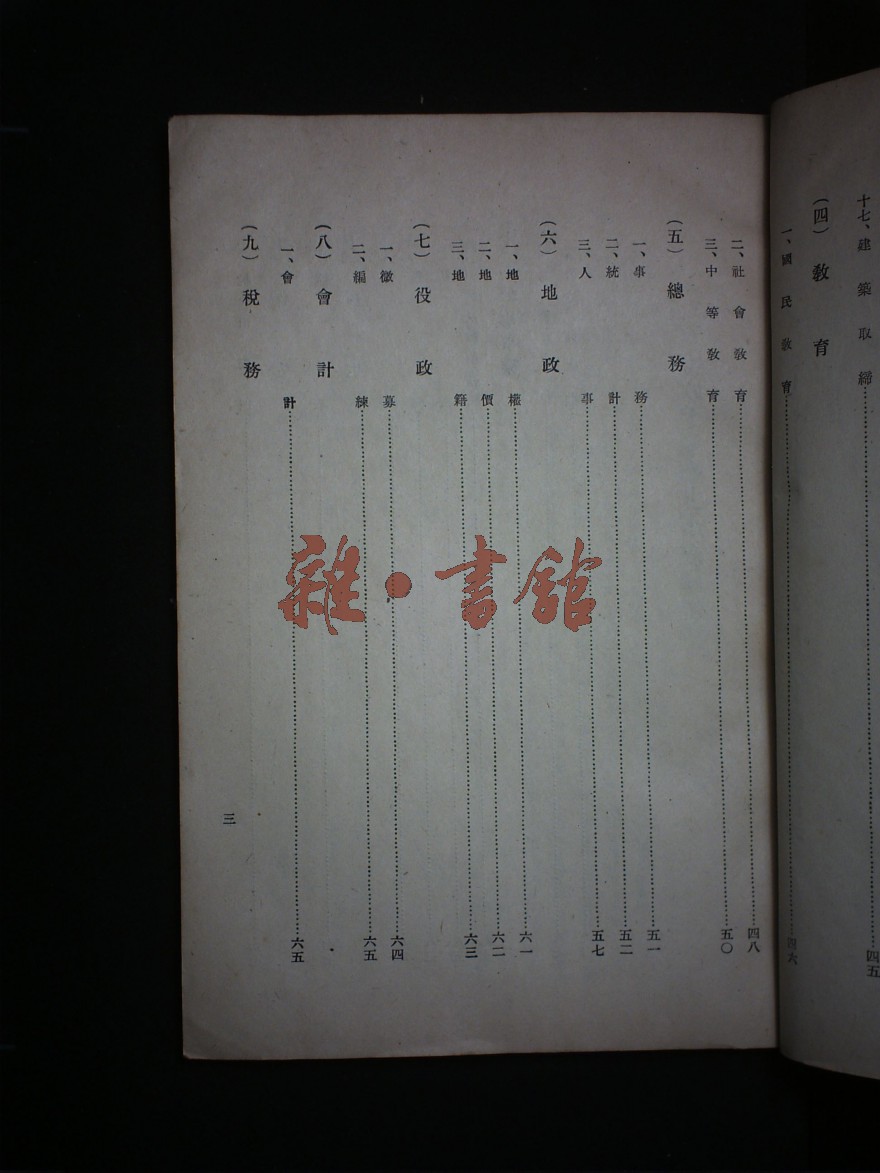 十七、建築取締……四五
(四) 教育
一、國民教育……四六
二、社會教育……四八
三、中等教育……五〇
(五) 總務
一、事務……五一
二、統計……五二
三、人事……五七
(六) 地政
一、地權……六一
二、地價……六二
三、地籍……六三
(七) 役政
一、徵募……六四
二、編練……六五
(八) 會計
一、會計……六五
(九) 稅務
三
雜·書館